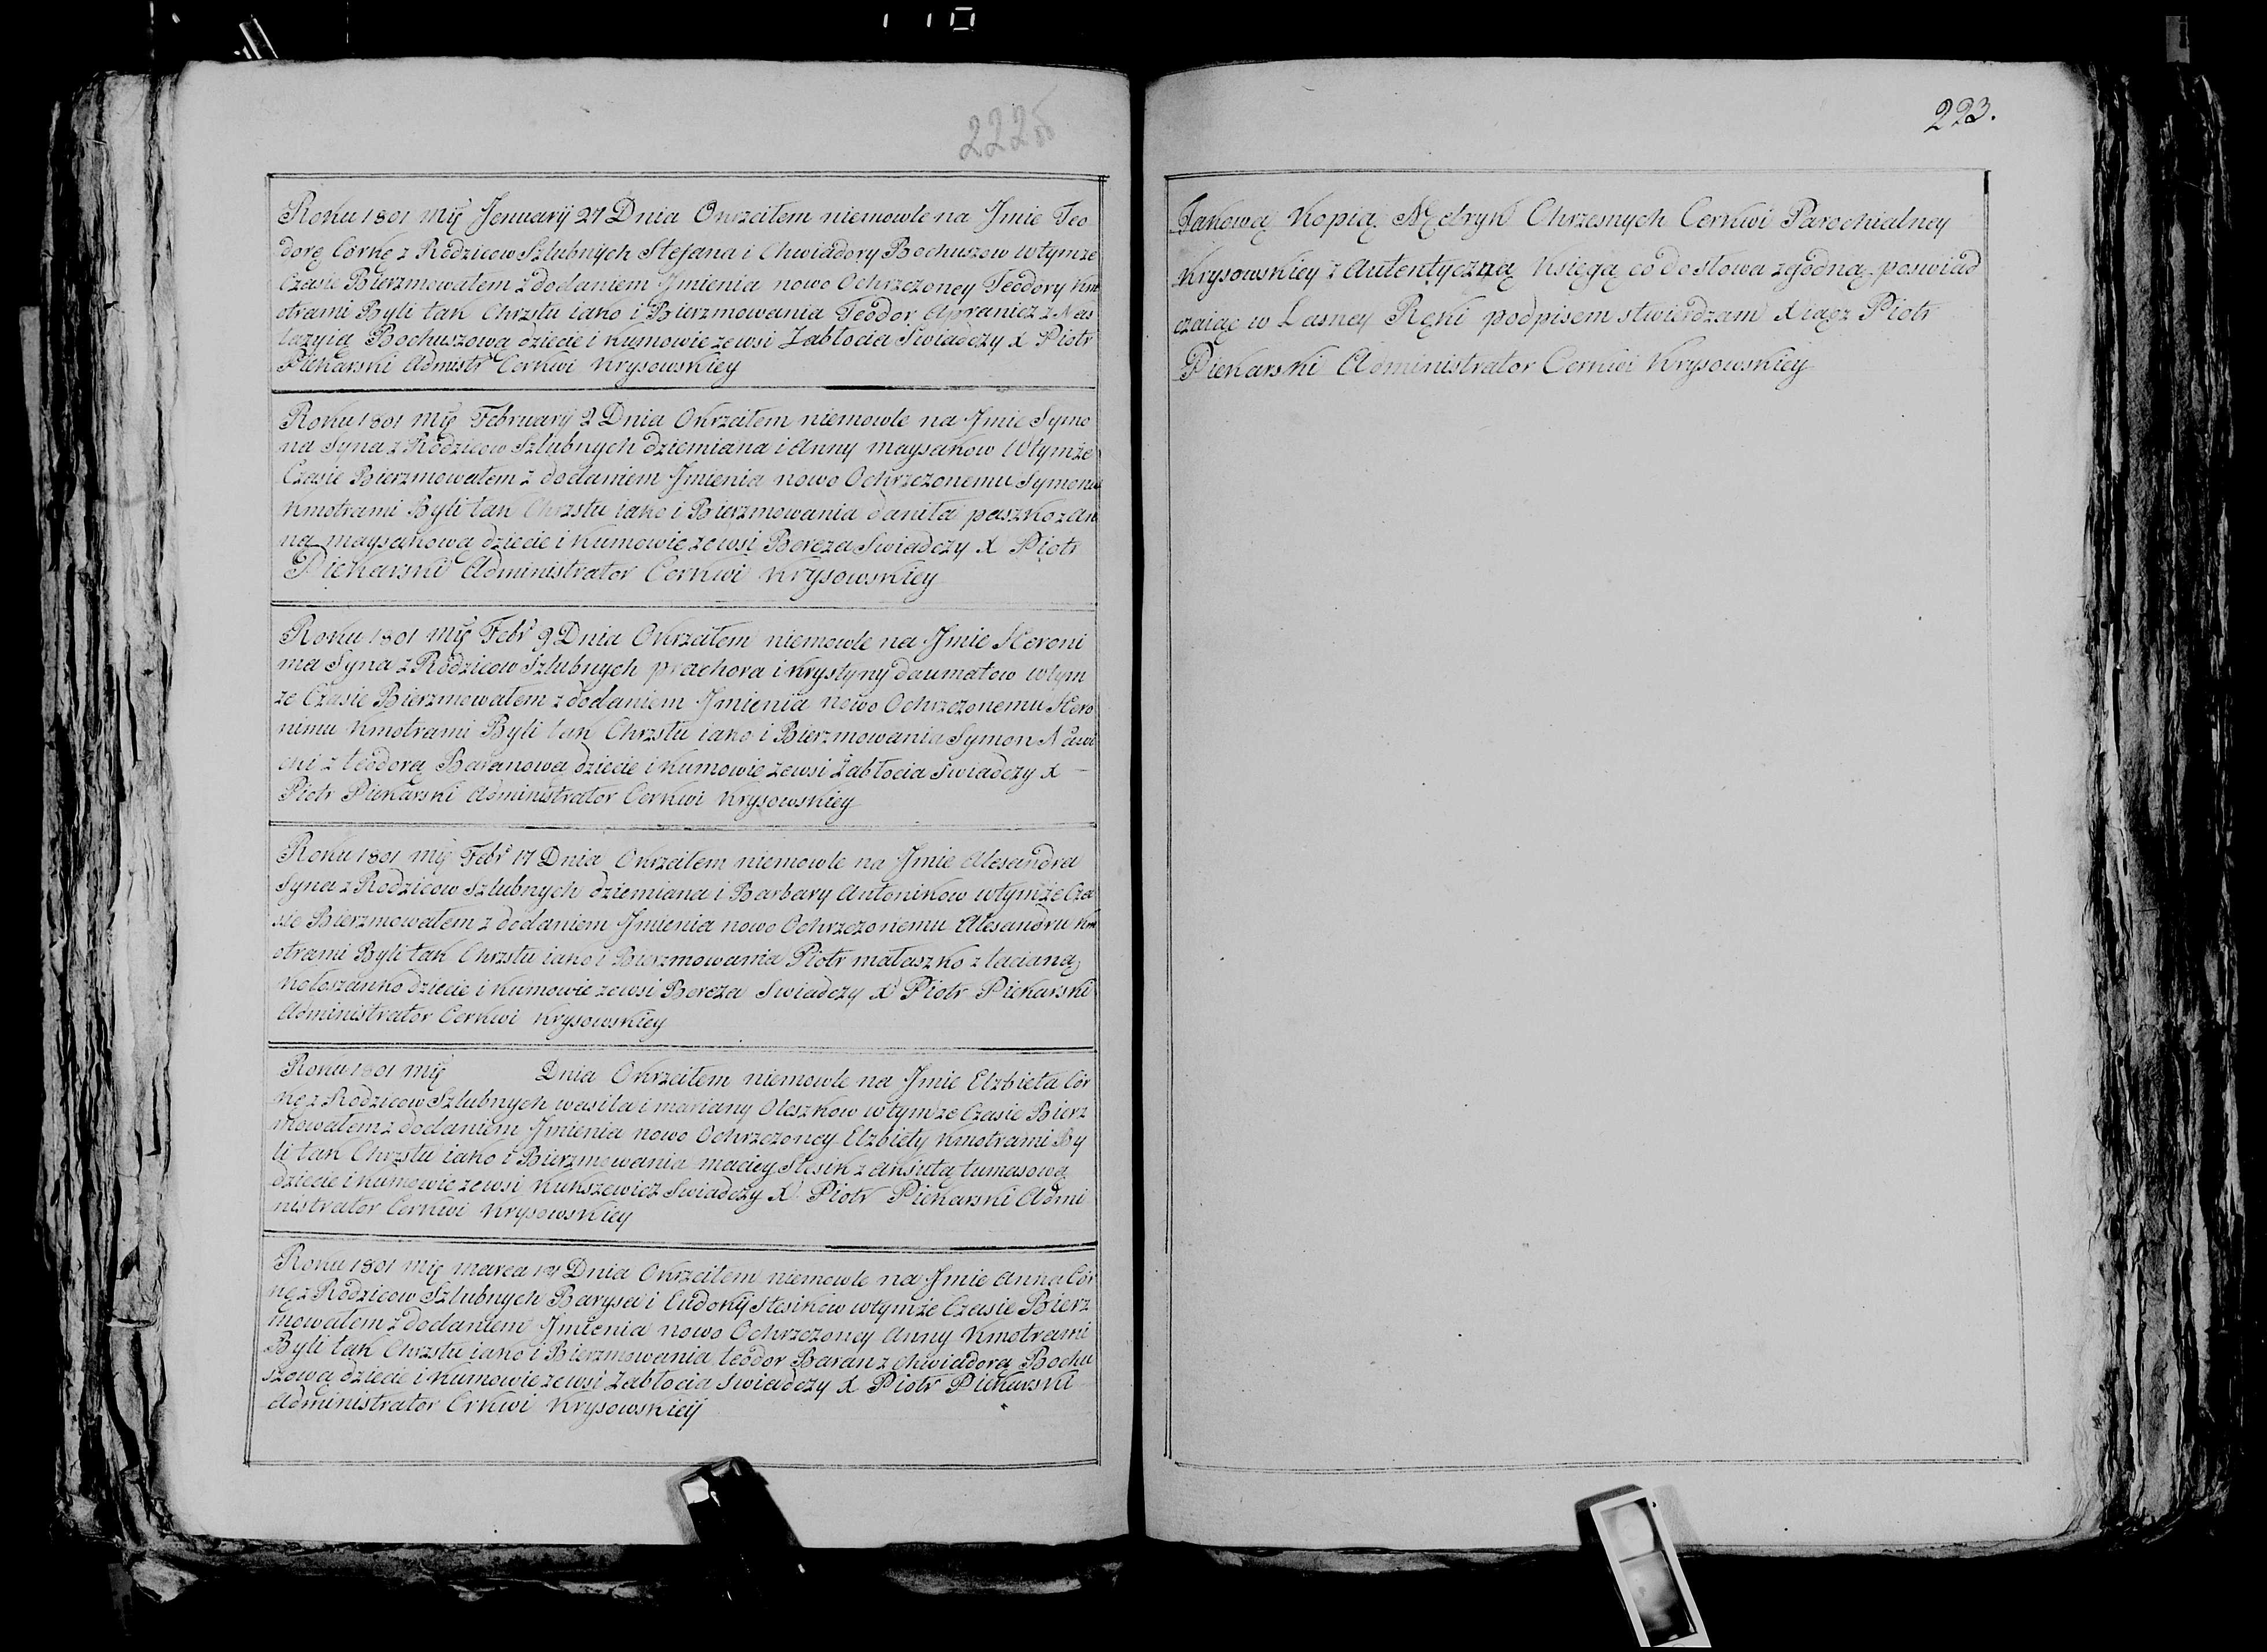 222
Roku 1801 Mcę Jenuarij 27 Dnia Okrzciłem niemowle na Jmie Teo
dorę Corkę z Rodzicow Szlubnych Stefana i Chwiadory Bochuszow wtymze
Czasie Bierzmowałem z dodaniem Jmienia nowo Ochrzczoney Teodory Km
otrami Byli tak Chrztu iako i Bierzmowania Teodor z Nas
tazyią Bochuszową dziecie i Kumowie zewsi Zabłocia Swiadczy X Piotr
Piekarski Admistr Cerkwi Krysowskiey
Roku 1801 Mcę Februarij 2 Dnia Okrzciłem niemowle na Jmie Symo
na Syna z Rodzicow Szlubnych dziemiana i Anny maysakow Wtymże
Czasie Bierzmowałem z dodaniem Jmienia nowo Ochrzczonemu Symonu
Kmotrami Byli tak Chrzstu iako i Bierzmowania daniła paszko z An
ną maysakową dziecie i Kumowie zewsi Bereza Swiadczy X Piotr
Piekarski Administrator Cerkwi Krysowskiey
Roku 1801 Mcę Febr 9 Dnia Okrzciłem niemowle na Jmie Heroni
ma Syna z Rodzicow Szlubnych prachora i Krystyny daumatow wtym
ze Czasie Bierzmowałem z dodaniem Jmienia nowo Ochrzczonemu Hero
nimu Kmotrami Byli tak Chrzstu iako i Bierzmowania Symon
z teodorą Baranową dziecie i Kumowie zewsi Zabłocia Swiadczy X
Piotr Piekarski Administrator Cerkwi Krysowskiey
Roku 1801 Mcę Febr 17 Dnia Okrzciłem niemowle na Jmie Alesandra
Syna z Rodzicow Szlubnych dziemiana i Barbary Antonikow wtymże Cza
sie Bierzmowałem z dodaniem Jmienia nowo Ochrzczonemu Alesandru Km
otrami Byli tak Chrzstu iako i Bierzmowania Piotr mataszko z tacianą
kołoszanko dziecie i Kumowie zewsi Bereza Swiadczy X Piotr Piekarski
Administrator Cerkwi Krysowskiey
Roku 1801 Mcę Dnia Okrzciłem niemowle na Jmie Elzbieta Cór
kę z Rodzicow Szlubnych wasila i mariany Oleszkow wtymze Czasie Bierz
mowałem z dodaniem Jmienia nowo Ochrzczoney Elzbiety Kmotrami By
li tak Chrzstu iako i Bierzmowania maciey Stesik z ansutą tumasową
dziecie i Kumowie zewsi Kukszewicz Swiadczy X Piotr Piekarski Admi
nistrator Cerkwi Krysowskiey
Roku 1801 Mcę marca 14 Dnia Okrzciłem niemowle na Jmie Anna Cór
kę z Rodzicow Szlubnych Barysa i Eudokij Stesikow wtymże Czasie Bierz
mowałem z dodaniem Jmienia nowo Ochrzczoney Anny Kmotrami
Byli tak Chrzstu iako i Bierzmowania teodor Baran z Chwiadorą Bochu
szową dziecie i Kumowie zewsi Zabłocia Swiadczy X Piotr Piekarski
Administrator Crkwi Krysowskieij
223.
Jakową Kopią Metryk Chrzesnych Cerkwi Parochialney
Krysowskiey z Autentyczną Księgą co do słowa zgodną poswiad
czaiąc w Łasney Ręki podpisem stwierdzam Xiądz Piotr
Piekarski Administrator Cerkwi Krysowskiey